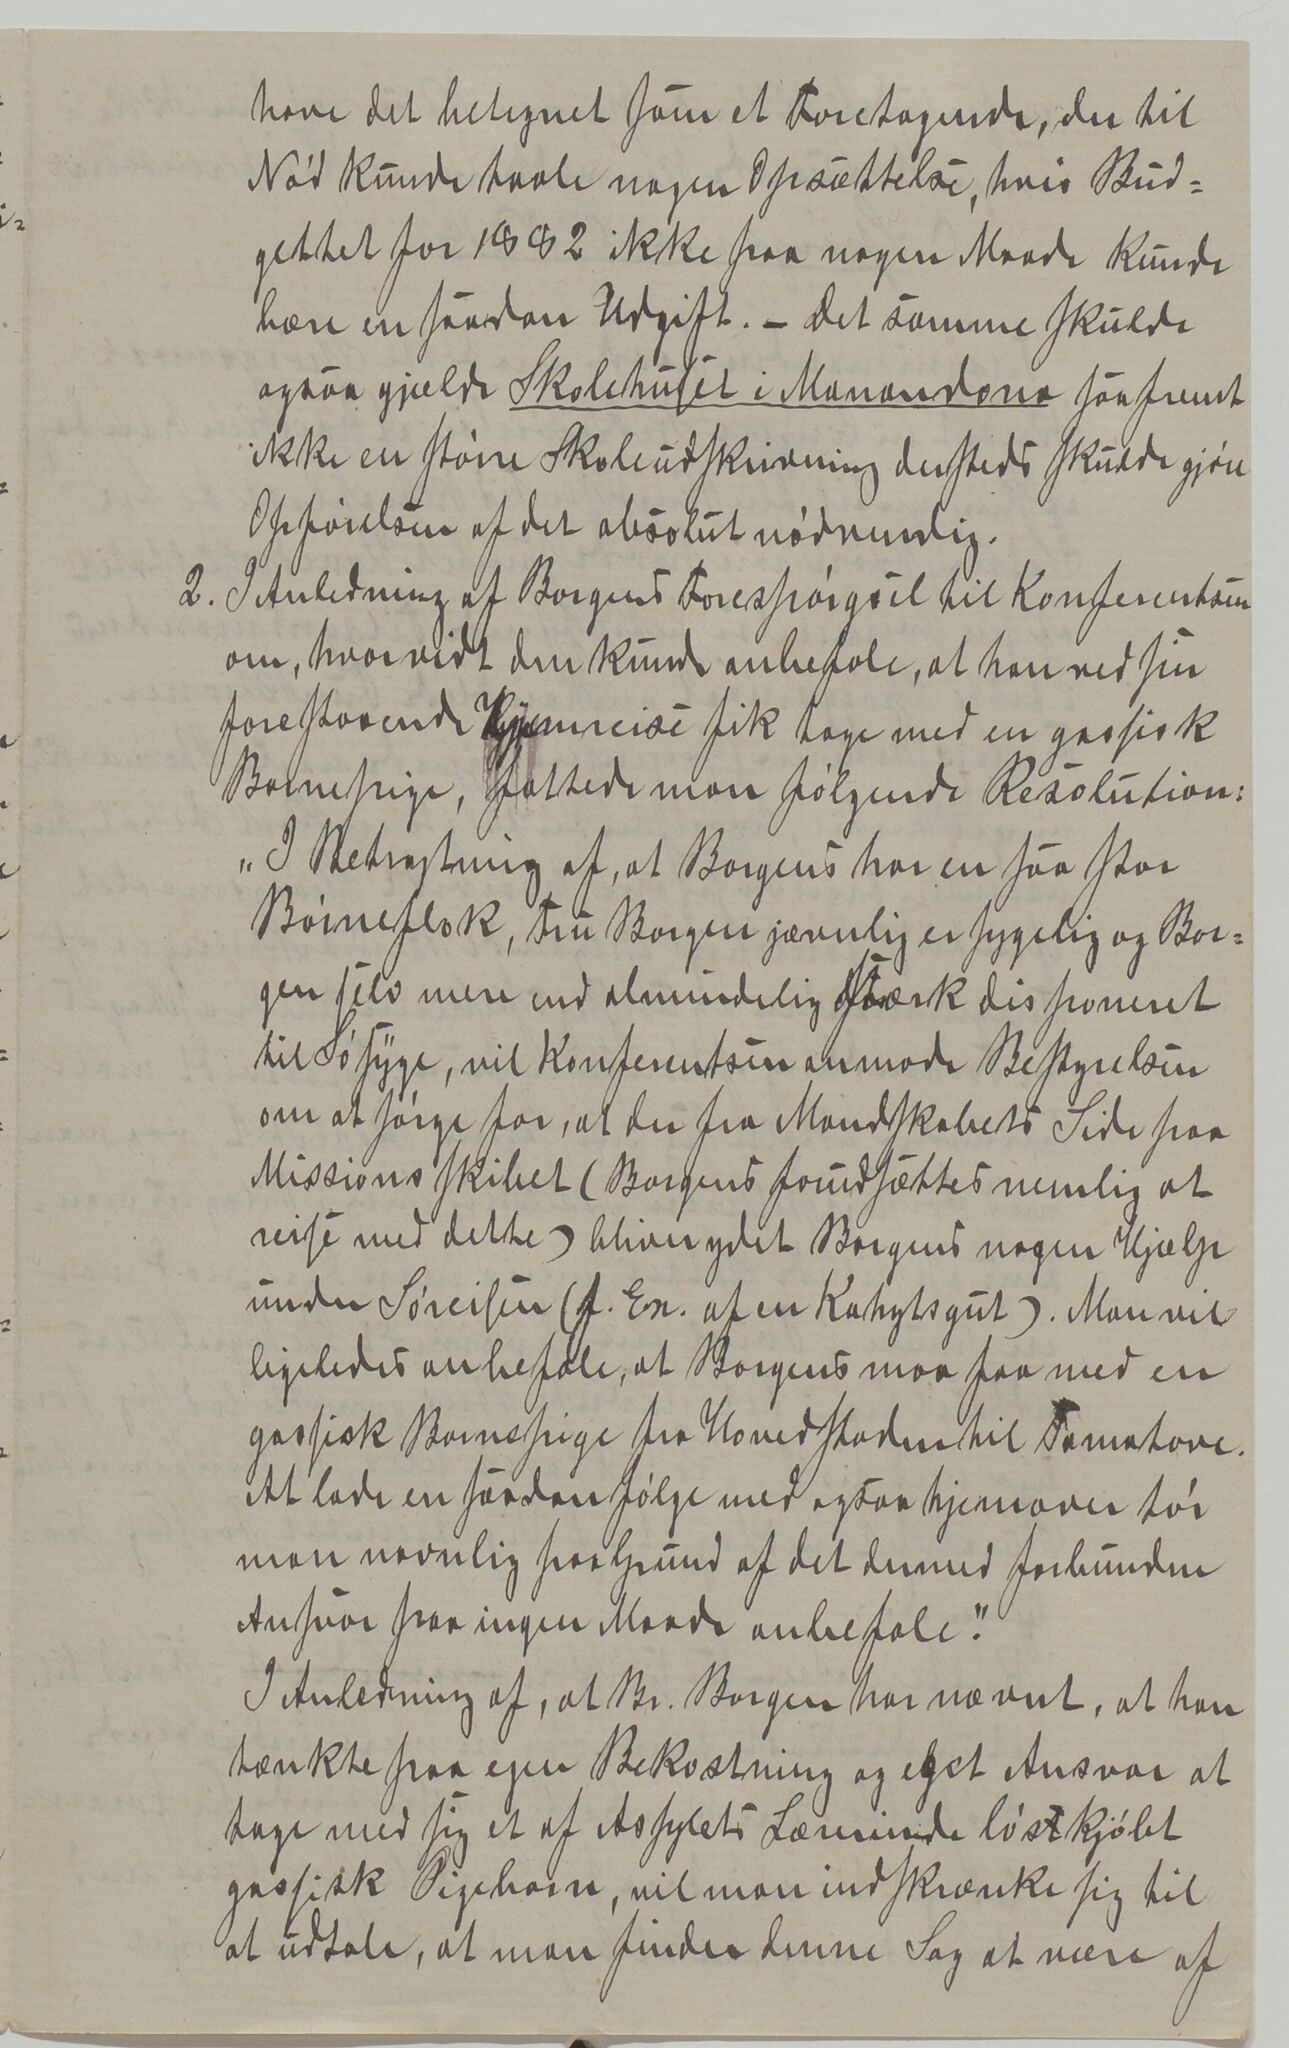 have det betegnet som et Foretagende, der til
Nød kunde taale nogen Opsættelse, hvis Bud=
gettet for 1882 ikke paa nogen Maade kunde
bære en saadan Udgift. – Det samme skulde
ogsaa gjælde Skolehuset i Manandona saafremt
ikke en større Skoleudskrivning dersteds skulde gjøre
Opførelsen af det absolut nødvendig.
2. I Anledning af Borgens Forespørgsel til Konferentsen
om, hvorvidt den kunde anbefale, at han ved sin
forestaaende Hjemreise fik tage med en gassisk
Barnepige, fattede man følgende Resolution:
„I Betragtning af, at Borgens har en saa stor
Børneflok, Fru Borgen jævnlig er sygelig og Bor=
gen selv mere end almindelig stærk disponeret
til Søsyge, vil Konferentsen anmode Bestyrelsen
om at sørge for, at der fra Mandskabets Side paa
Missionsskibet (Borgens forudsættes nemlig at
reise med dette) bliver ydet Borgens nogen Hjælp
under Søreisen (f. Ex. af en Kahytsgut). Man vil
ligeledes anbefale, at Borgens maa faa med en
gassisk Barnepige fra Hovedstaden til Tamatave.
At lade en saadan følge med ogsaa hjemover tør
man navnlig paa Grund af det dermed forbundne
Ansvar paa ingen Maade anbefale."
I Anledning af, at Br. Borgen har nævnt, at han
tænkte paa egen Bekostning og eget Ansvar at
tage med sig et af Assylets Lærerinde løskjøbt
gassisk Pigebarn, vil man indskrænke sig til
at udtale, at man finder denne Sag at være af